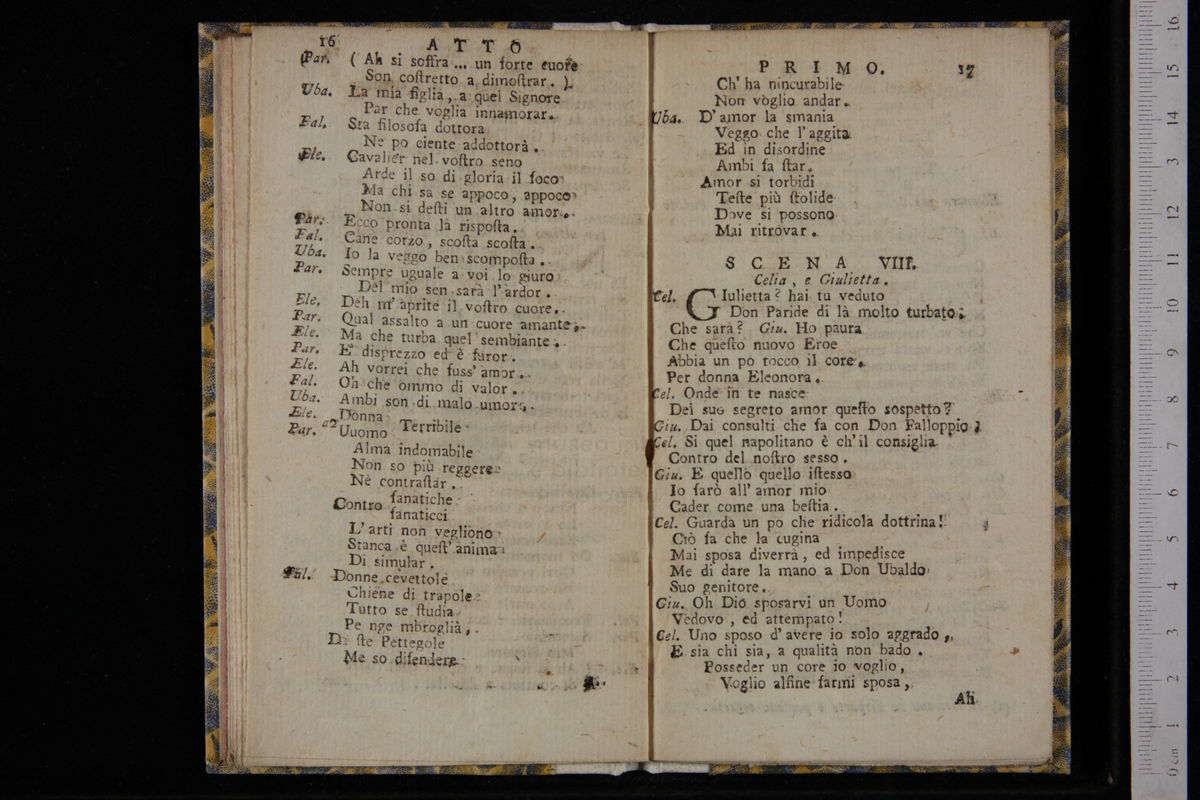 16 ATTO
Par. ( Ah si soffra ... un forte cuore
Son coſtretto a dimoſtrar. )
Uba. La mia figlia, a quel Signore
Par che voglia innamorar.
Fal. Sta filosofa dottora
Ne po ciente addottorà.
Ele. Cavalier nel voſtro seno
Arde il so di gloria il foco
Ma chi sa se appoco, appoco
Non si deſti un altro amor.
Par. Ecco pronta la rispoſta.
Fal. Cane corzo, scoſta scoſta.
Uba. Io la veggo ben scompoſta.
Par. Sempre uguale a voi lo giuro
Del mio sen sarà l'ardor.
Ele. Deh m'aprite il voſtro cuore.
Par. Qual assalto a un cuore amante;
Ele. Ma che turba quel sembiante;
Par. E' disprezzo ed è furor.
Ele. Ah vorrei che fuss' amor.
Fal. Oh che ommo di valor.
Uba. Ambi son di malo umor;
Ele. Donna
Par. a2 Uuomo Terribile
Alma indomabile
Non so più reggere
Nè contraſtar.
Contro fanatiche
fanaticci
L'arti non vegliono
Stanca è queſt' anima
Di simular.
Fal. Donne cevettole
Chiene di trapole
Tutto se ſtudia
Pe nge mbroglià,
Da ſte Pettegole
Me so difendere
PRIMO. 17
Ch' ha nincurabile
Non voglio andar.
Uba. D'amor la smania
Veggo che l'aggita
Ed in disordine
Ambi fa ſtar.
Amor si torbidi
Teſte più ſtolide
Dove si possono
Mai ritrovar.
SCENA VIII.
Celia, e Giulietta.
Cel. GIulietta? hai tu veduto
Don Paride di là molto turbato;
Che sarà? Giu. Ho paura
Che queſto nuovo Eroe
Abbia un po tocco il core.
Per donna Eleonora.
Cel. Onde in te nasce
Del suo segreto amor queſto sospetto?
Giu. Dai consulti che fa con Don Falloppio;
Cel. Si quel napolitano è ch'il consiglia
Contro del noſtro sesso.
Giu. E quello quello iſtesso
Io farò all' amor mio
Cader come una beſtia.
Cel. Guarda un po che ridicola dottrina!
Ciò fa che la cugina
Mai sposa diverrà, ed impedisce
Me di dare la mano a Don Ubaldo
Suo genitore.
Giu. Oh Dio sposarvi un Uomo
Vedovo, ed attempato!
Cel. Uno sposo d'avere io solo aggrado,
E sia chi sia, a qualità non bado.
Posseder un core io voglio,
Voglio alfine farmi sposa,
Ah